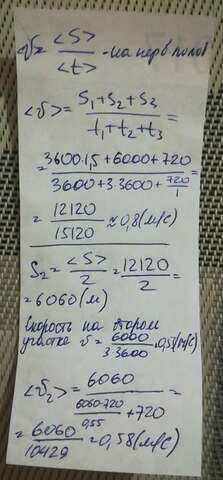 <v> = <S> / <t> - на перв полов
<v> = S₁+S₂+S₃ / t₁+t₂+t₃ =
= 3600·1,5+6000+720 / 3600+3·3600+720/1 =
= 12120 / 15120 ≈ 0,8 (м/с)
S₂ = <S> / 2 = 12120 / 2 =
= 6060 (м)
Скорость на втором
участке v = 6000 / 3·3600 ≈ 0,55 (м/с)
<v₂> = 6060 / 6060-720 / 0,55 + 720 =
= 6060 / 10429 ≈ 0,58 (м/с)